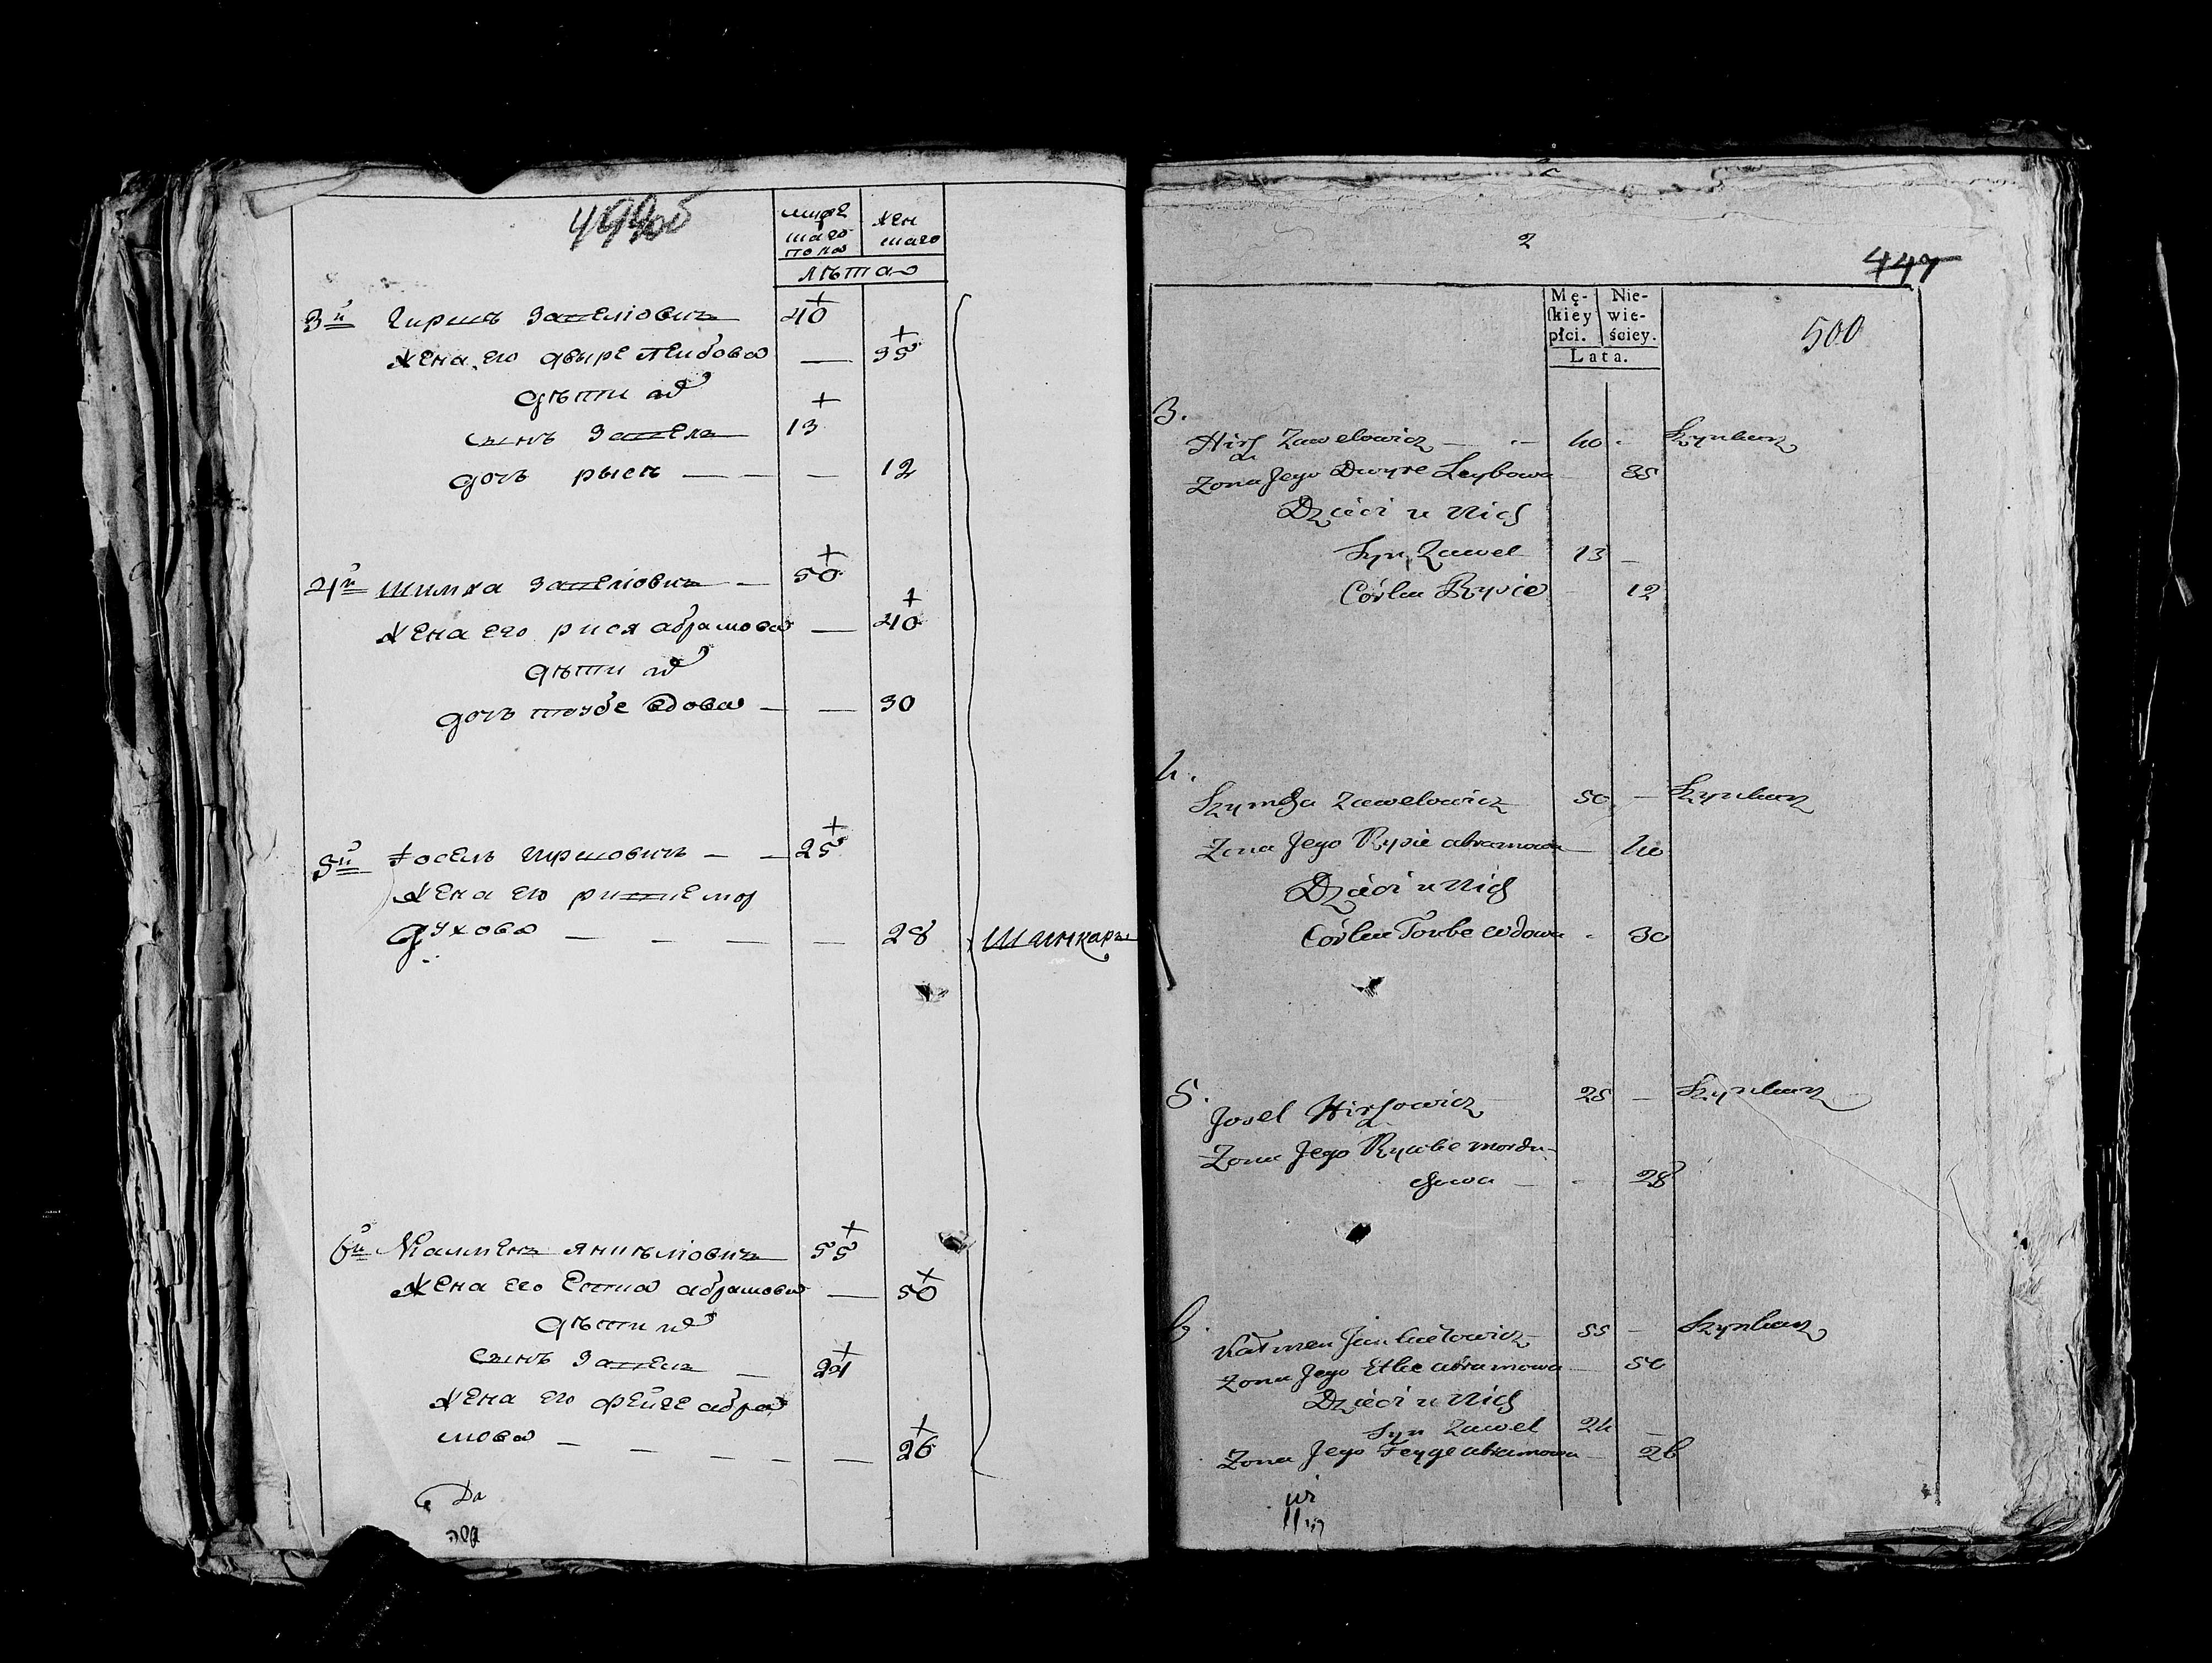 мужеска го пола
женскаго
лѣта
3й Гиршъ Завеліовичъ 40
жена его Двыре Лейбова — 35
дѣти их
сынъ Завель 13
дочь Рысе — — — 12
4й Шимха Завеліовичъ — 50
жена его Рися Абрамова — 40
дѣти их
дочь Тоубе вдова — — 30
5й Іосель Гиршовичъ — — 25
жена его Ривке Мор
духова — — — — — 28 Шинкаръ
6й Калменъ Янкѣліовичъ 55
жена его Етка Абрамова — 50
дѣти их
сынъ Завель — 24
жена его Фейге Абра
мова — — — — — 26
2
447
Mę-
skiey
płci.
Nie-
wie-
ściey.
Lata.
500
3.
Hirsz Zawelowicz — — 40 - Szynkarz
Zona Jego Dwyre Leybowa - 35
Dzieci u Nich
Syn Zawel 13 -
Córka Rysie - 12
4.
Szymcha Zawelowicz 50 - Szynkarz
Zona Jego Rysie abramowa — 40
Dzieci u Nich
Córka Toube wdowa - 30
5.
Josel Hirszowicz 25 - Szynkarz
Zona Jego Rywke mordu-
chowa — - 28
6.
Kałmen Jankielowicz 55 - Szynkarz
Zona Jego Etke abramowa — 50
Dzieci u Nich
Syn Zawel 24 -
Zona Jego Feyge abramowa - 26